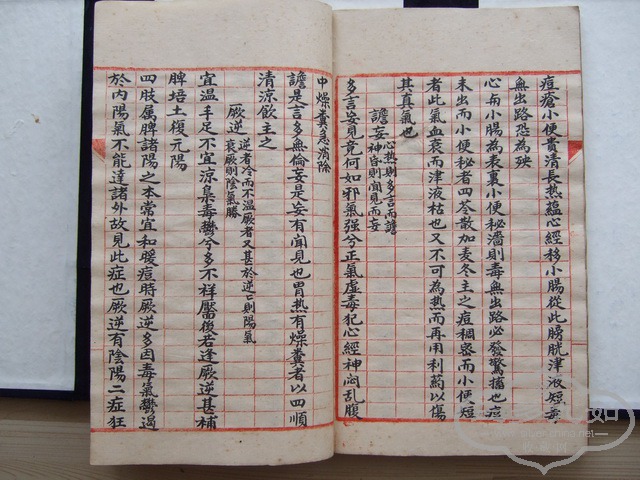 痘瘡小便貴清長热蘊心經移小腸從此膀胱津液短毒
無出路恐為殃
心与小腸為表裏小便秘濇則毒無出路必發驚搐也痘
未出而小便秘者四苓散加麦冬主之痘稠密而小便短
者此氣血衰而津液枯也又不可為热而再用利药以傷
其真氣也
譫妄 心热則多言而譫 神昏則闻見而妄
多言妄見竟何如邪氣强兮正氣虚毒犯心經神必乱腹
中燥糞急消除
譫是言多無倫妄是妄有闻見也胃热有燥糞者以四順
清凉飲主之
厥逆 逆者冷而不温厥者又甚於逆亡則陽氣 衰厥則陰氣勝
宜温手足不宜凉梟毒欝兮多不祥靥後若逢厥逆甚補
脾培土復元陽
四肢属脾諸陽之本常宜和暖痘時厥逆多因毒氣欝遏
於内陽氣不能達諸外故見此症也厥逆有陰陽二症狂